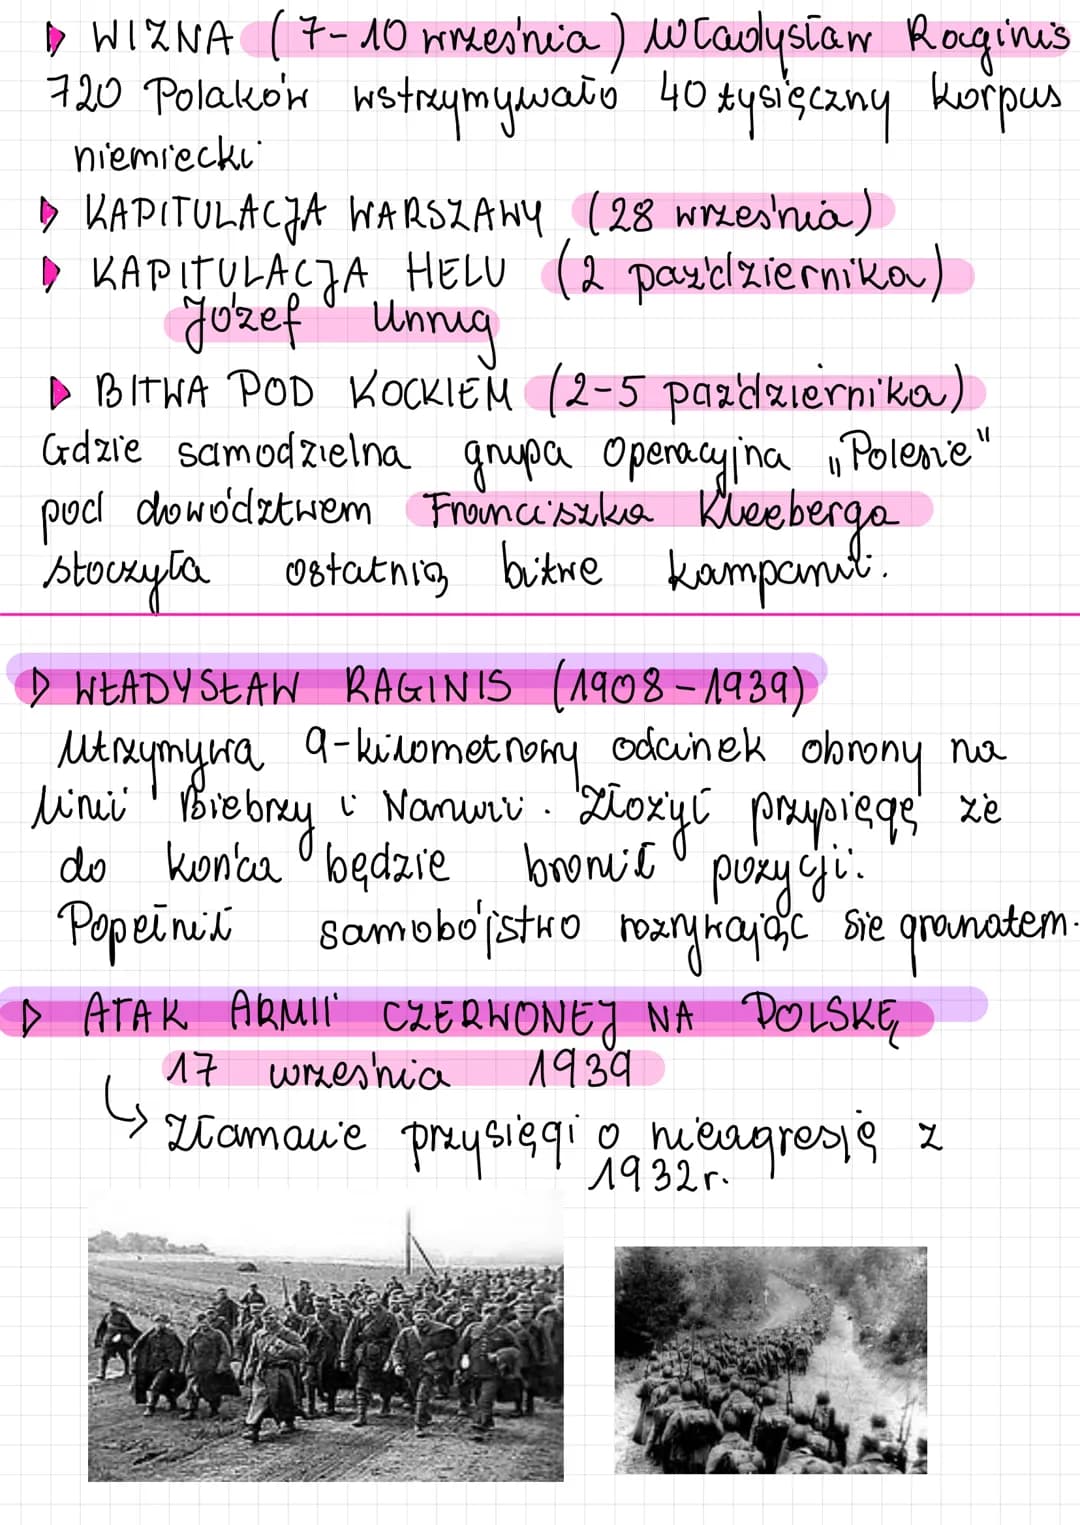 WIZNA (7-10 września) Władysław Raginis
720 Polaków wstrzymywało 40 tysięczny korpus
niemiecki
KAPITULACJA WARSZAWY (28 września)
KAPITULACJA HELU (2 października)
Józef Unrug
BITWA POD KOCKIEM (2-5 października)
Gdzie samodzielna grupa Operacyjna „Polesie"
pod dowództwem Franciszka Kleeberga
stoczyła ostatnią bitwe kampanii.
WŁADYSŁAW RAGINIS (1908-1939)
Utrzymywa 9-kilometrowy odcinek obrony na
linii Biebrzy i Narwii. Złożył przysięgę że
do końca będzie bronił pozycji.
Popełnił samobójstwo rozrywając sie granatem.
ATAK ARMII CZERWONEJ NA POLSKĘ
17 września 1939
↳ Złamanie przysięgi o nieagresję z
1932r.